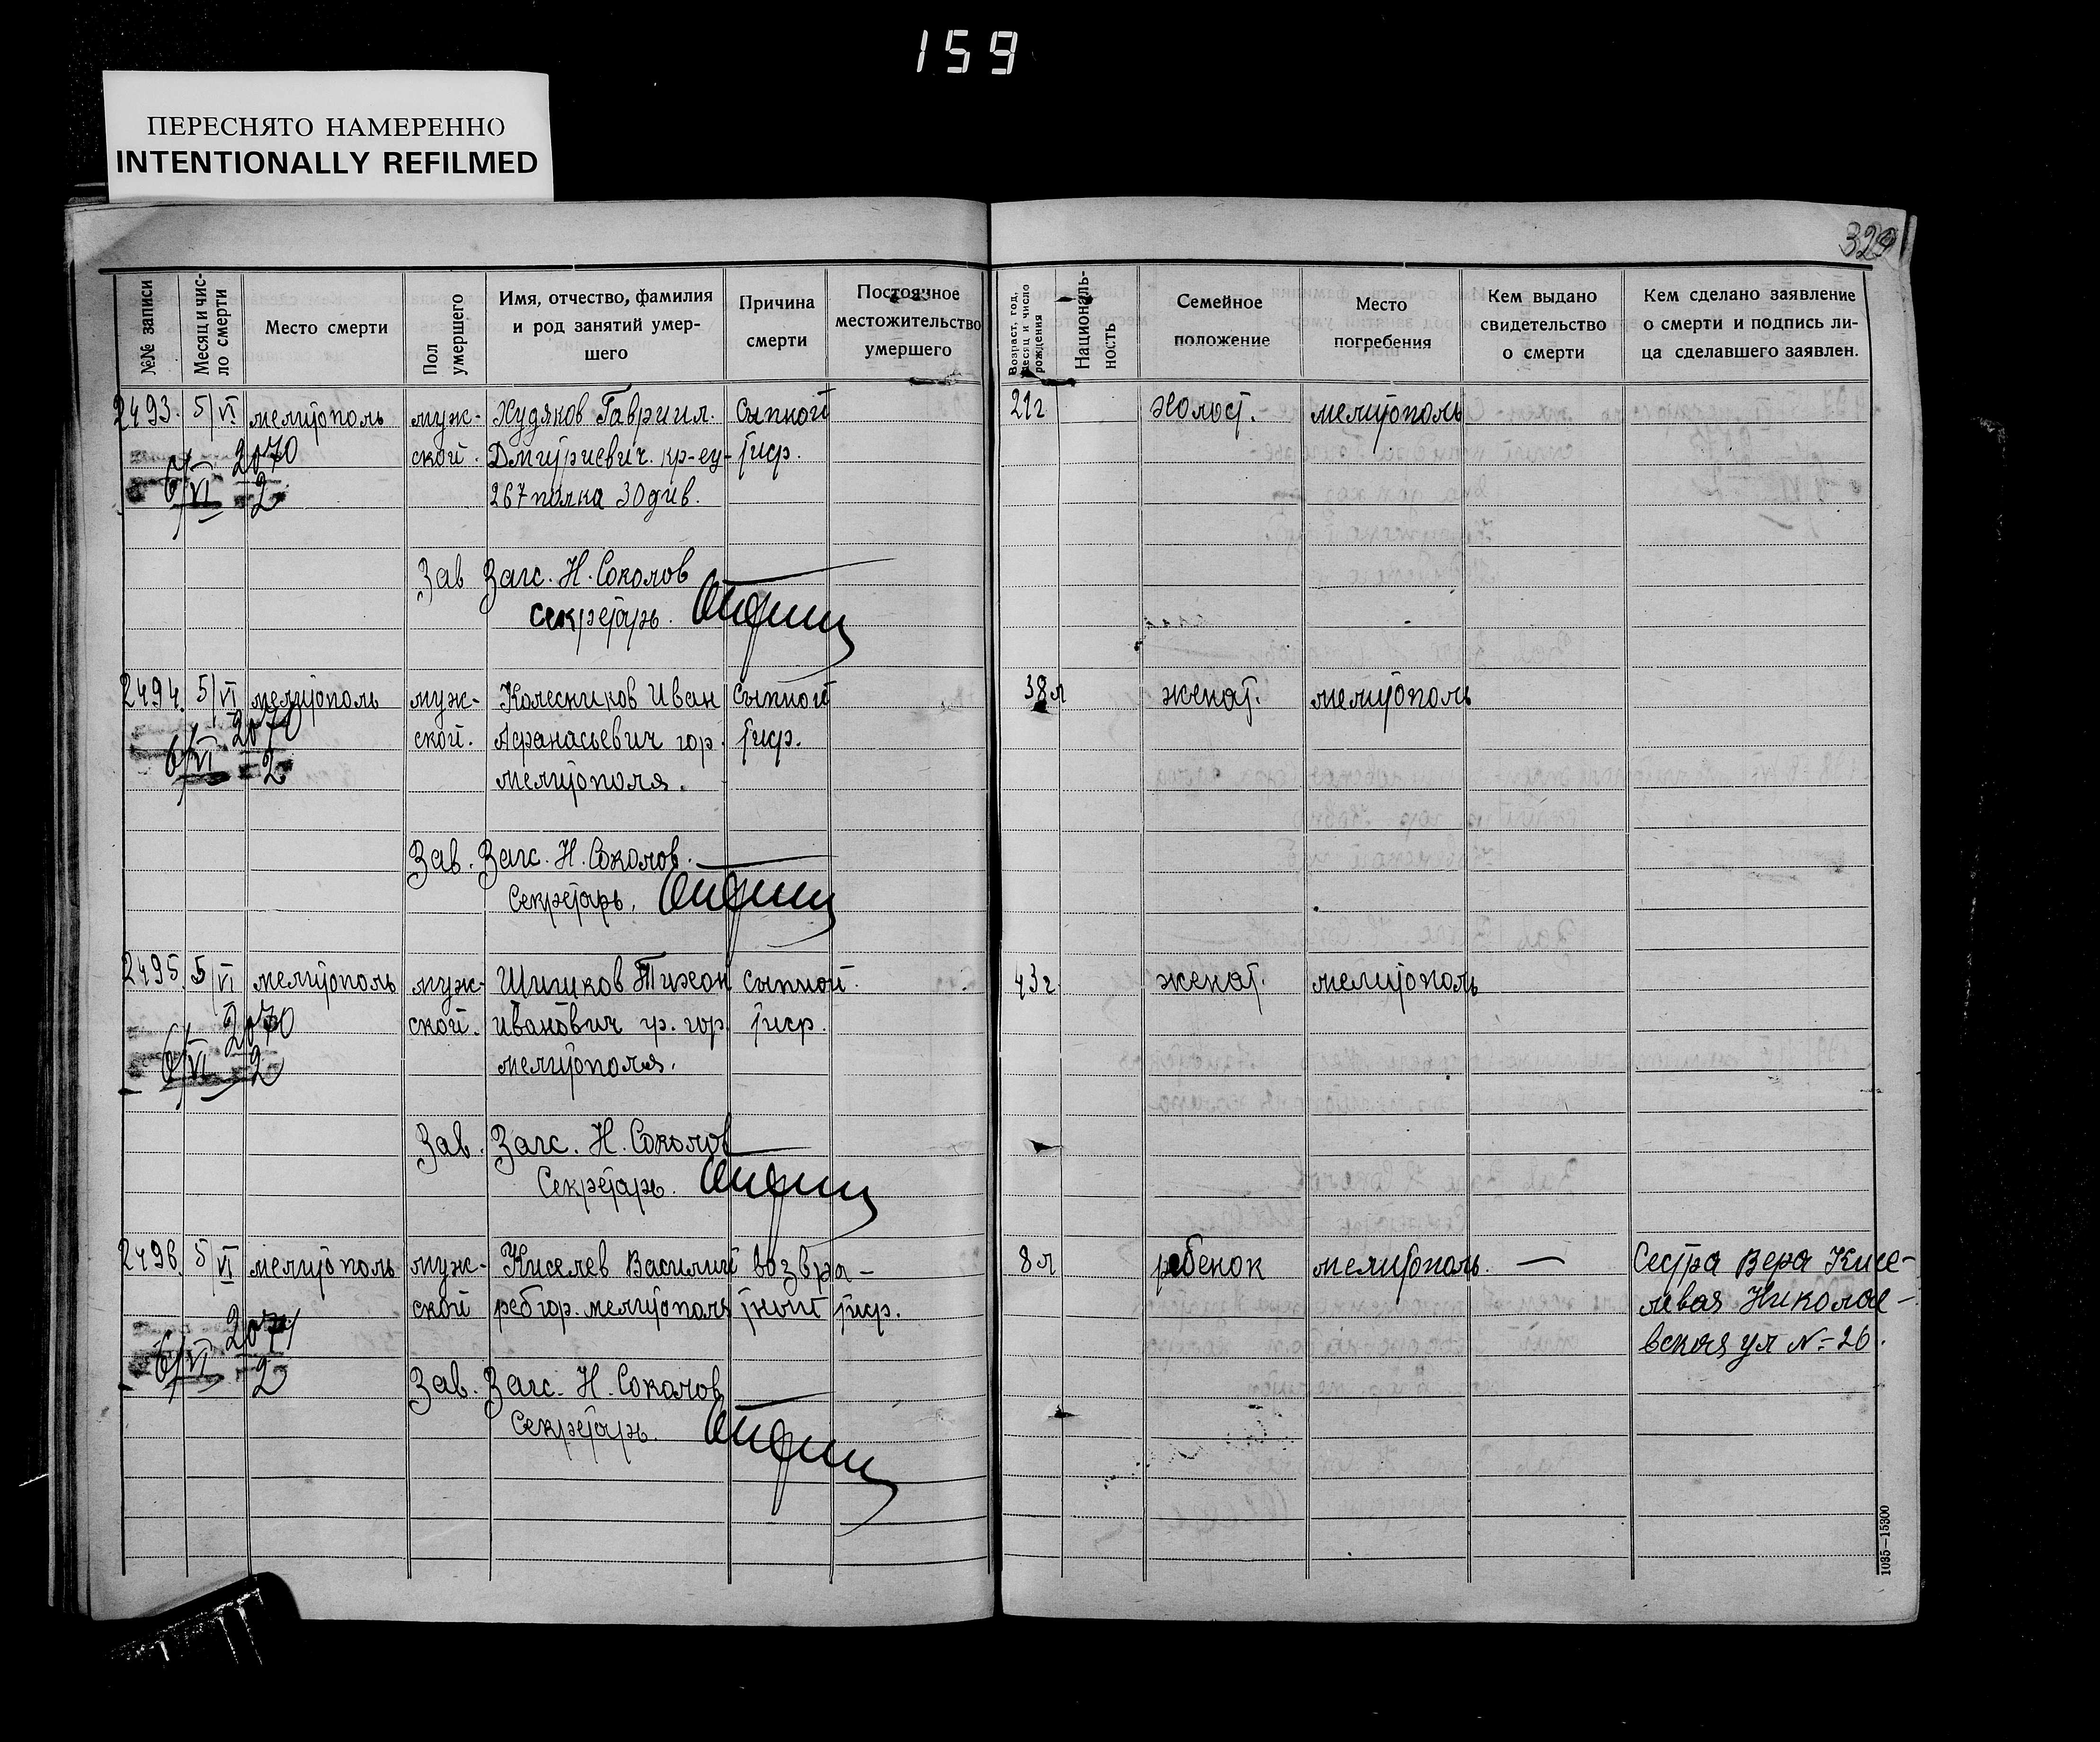 159
ПЕРЕСНЯТО НАМЕРЕННО
INTENTIONALLY REFILMED
329
№№ записи
Месяц и чис-
ло смерти
Место смерти
Пол
умершего
Имя, отчество, фамилия
и род занятий умер-
шего
Причина
смерти
Постоянное
местожительство
умершего
Возраст, год,
месяц и число
рождения
Националь-
ность
Семейное
положение
Место
погребения
Кем выдано
свидетельство
о смерти
Кем сделано заявление
о смерти и подпись ли-
ца сделавшего заявлен.
2493. 5/VI мелитополь муж- Худяков Гавриил. Сыпной 21г холост. мелитополь
6/VI 2070 ской. Дмитриевич. кр-ец тиф.
2 267 полка 30 див.
Зав Загс. Н. Соколов
Секретарь.
2494. 5/VI мелитополь муж- Колесников Иван Сыпной 38л женат. мелитополь
6/VI 2070 ской. Афанасьевич гор. тиф.
2 мелитополя.
Зав. Загс. Н. Соколов.
Секретарь.
2495. 5/VI мелитополь муж- Шишков Тихон сыпной. 43г женат. мелитополь
6/VI 2070 ской. Иванович гр. гор. тиф.
2 мелитополя.
Зав. Загс. Н. Соколов
Секретарь.
2496. 5/VI мелитополь муж- Киселев Василий возвра- 8л ребенок мелитополь. — Сестра Вера Кисе-
6/VI 2071 ской реб гор. мелитополя тный тиф. левая Николае-
2 вская ул №-26.
Зав. Загс. Н. Соколов
Секретарь.
1035—15300